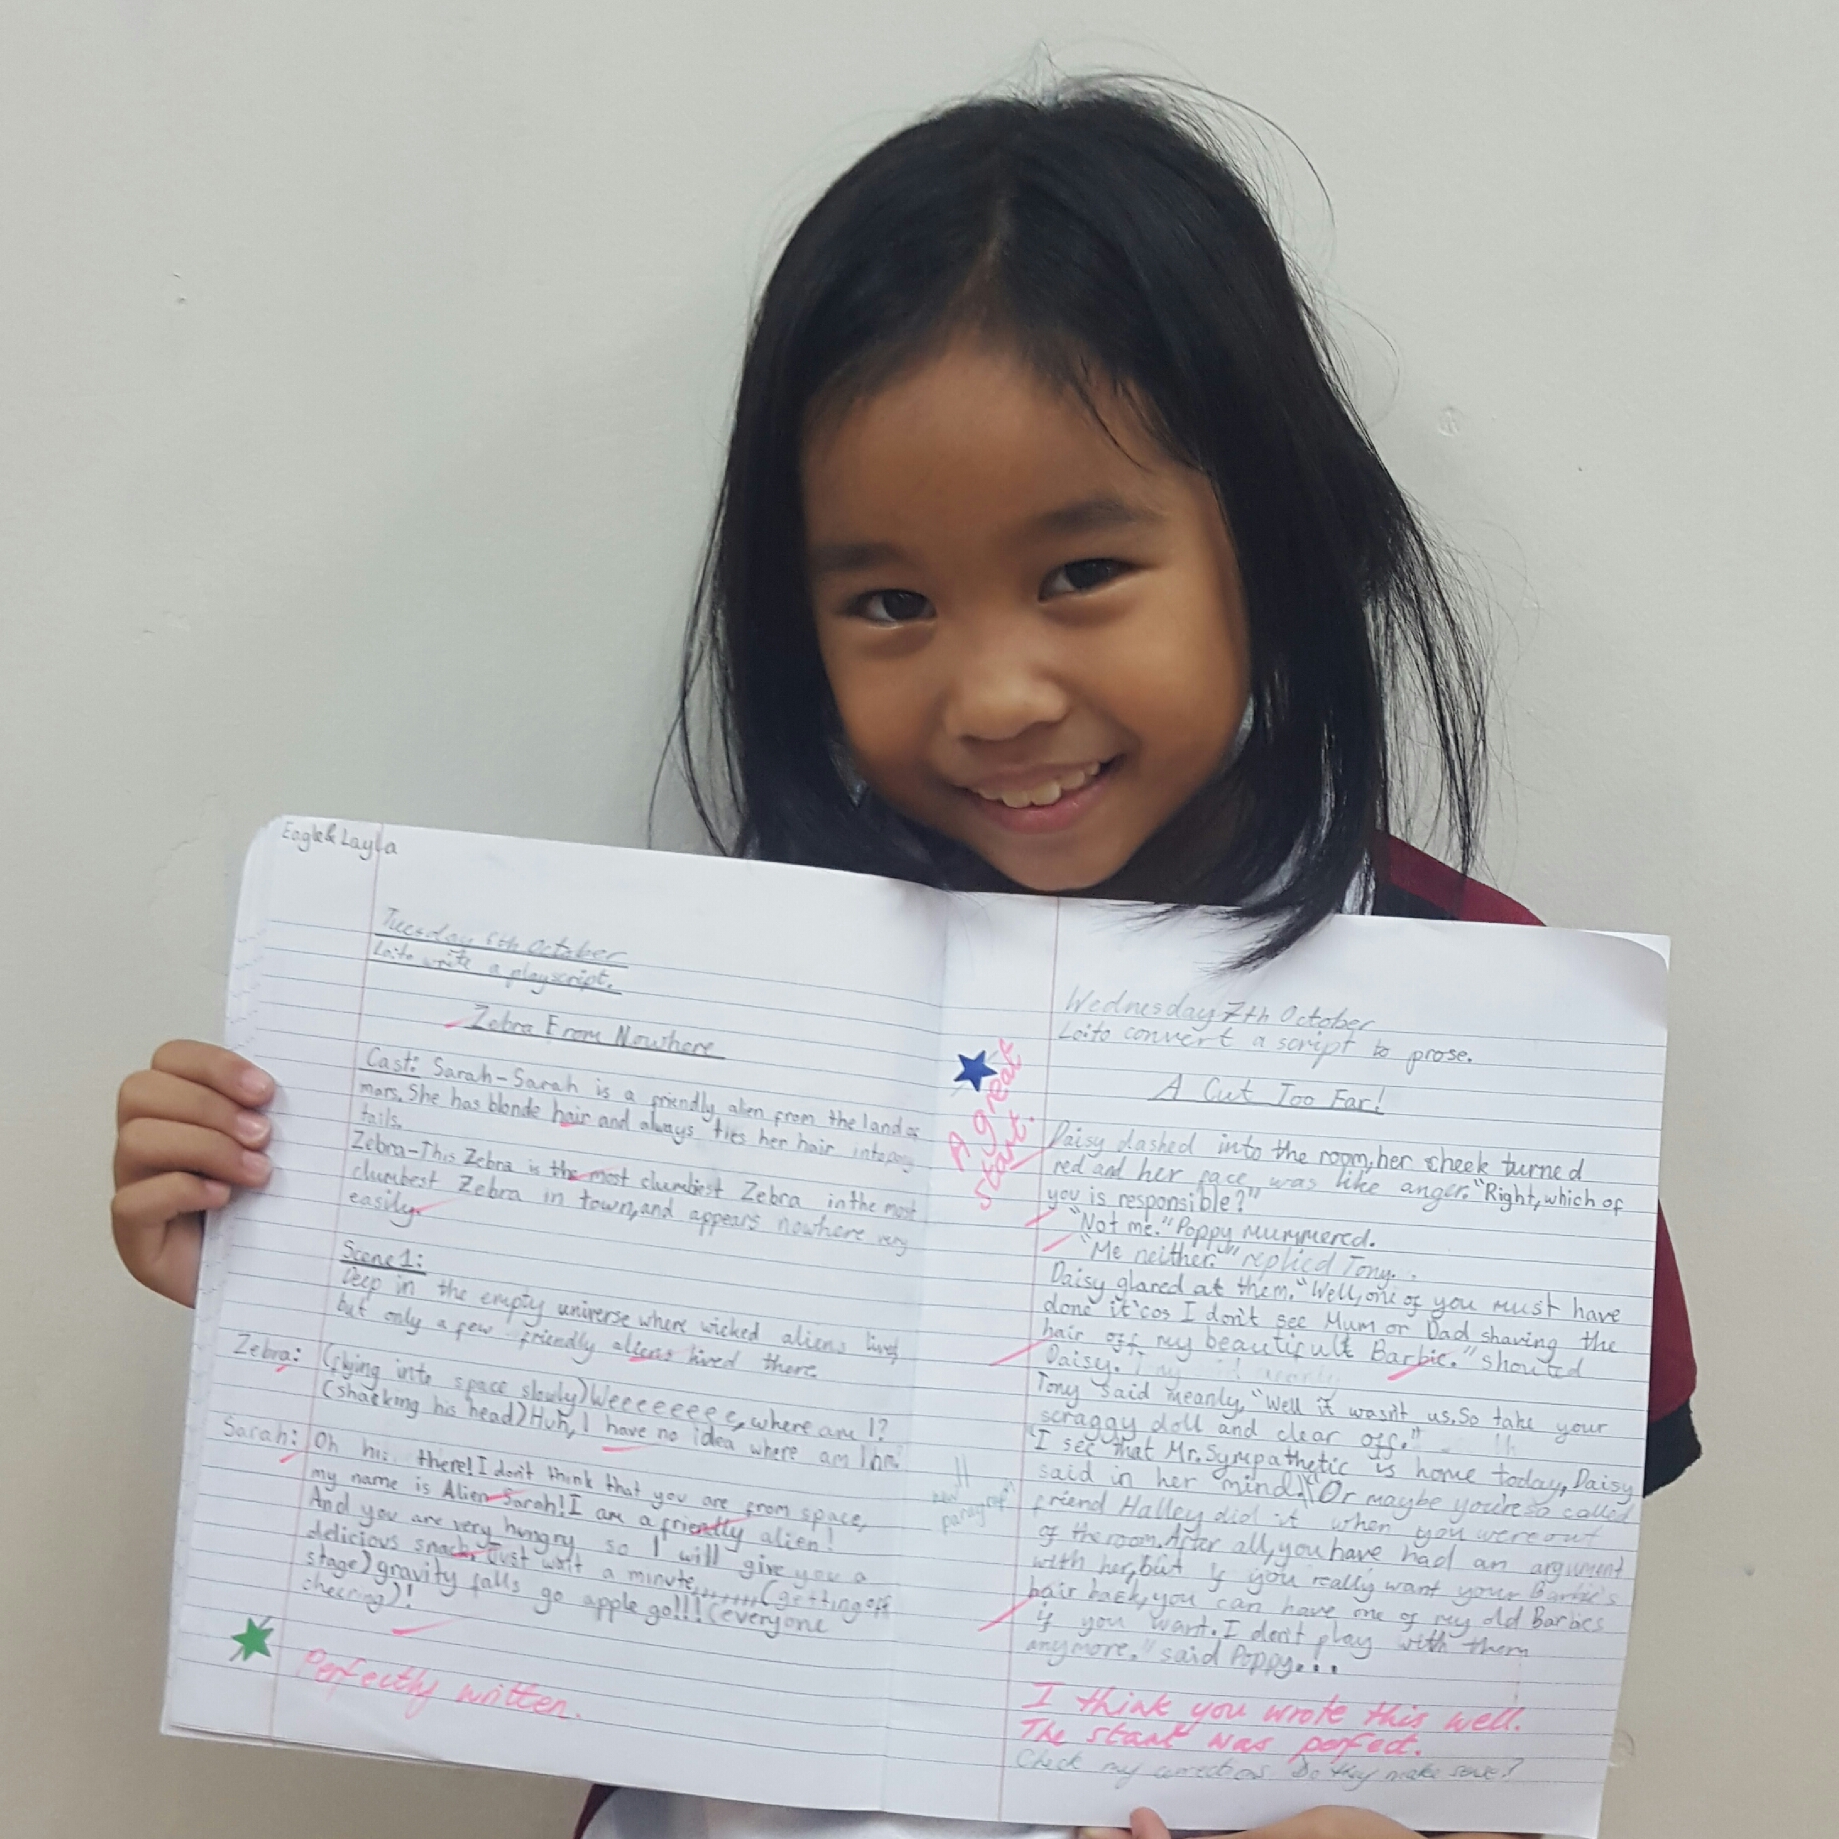 Eagle & Layla
Tuesday 6th October
Lo:to write a playscript.
Zebra From Nowhere
Cast: Sarah-Sarah is a friendly alien from the land of
mars. She has blonde hair and always ties her hair into pony
tails.
Zebra-This Zebra is the most clumbiest Zebra in the most
clumbest Zebra in town, and appears nowhere very
easily.
Scene 1:
Deep in the empty universe where wicked aliens lived
but only a few friendly aliens lived there
Zebra: (flying into space slowly) Weeeeeeee, where am I?
(shaeking his head) Huh, I have no idea where am I hm
Sarah: Oh hi, there! I don't think that you are from space,
my name is Alien Sarah! I am a friendly alien!
And you are very hungry so I will give you a
delicious snack. Just wait a minute,,,,,,,(getting off
stage) gravity falls go apple go!!! (everyone
cheering)!
Perfectly written.
Wednesday 7th October
Lo:to convert a script to prose.
A Cut Too Far!
A great
start.
Daisy dashed into the room, her cheek turned
red and her face was like anger. "Right, which of
you is responsible?"
"Not me." Poppy Mummered.
"Me neither." replied Tony.
Daisy glared at them. "Well, one of you must have
done it 'cos I don't see Mum or Dad shaving the
hair off my beautifult Barbie." shouted
Daisy.
Tony said meanly, "Well it wasn't us. So take your
scraggy doll and clear off."
"I see that Mr. Sympathetic is home today, Daisy
said in her mind. "Or maybe you're so called
friend Halley did it when you were out
of the room. After all, you have had an argument
with her, but if you really want your Barbie's
hair back, you can have one of my old Barbies
if you want. I don't play with them
anymore." said Poppy...
//
new
paragraph
I think you wrote this well.
The start was perfect.
Check my corrections. Do they make sense?